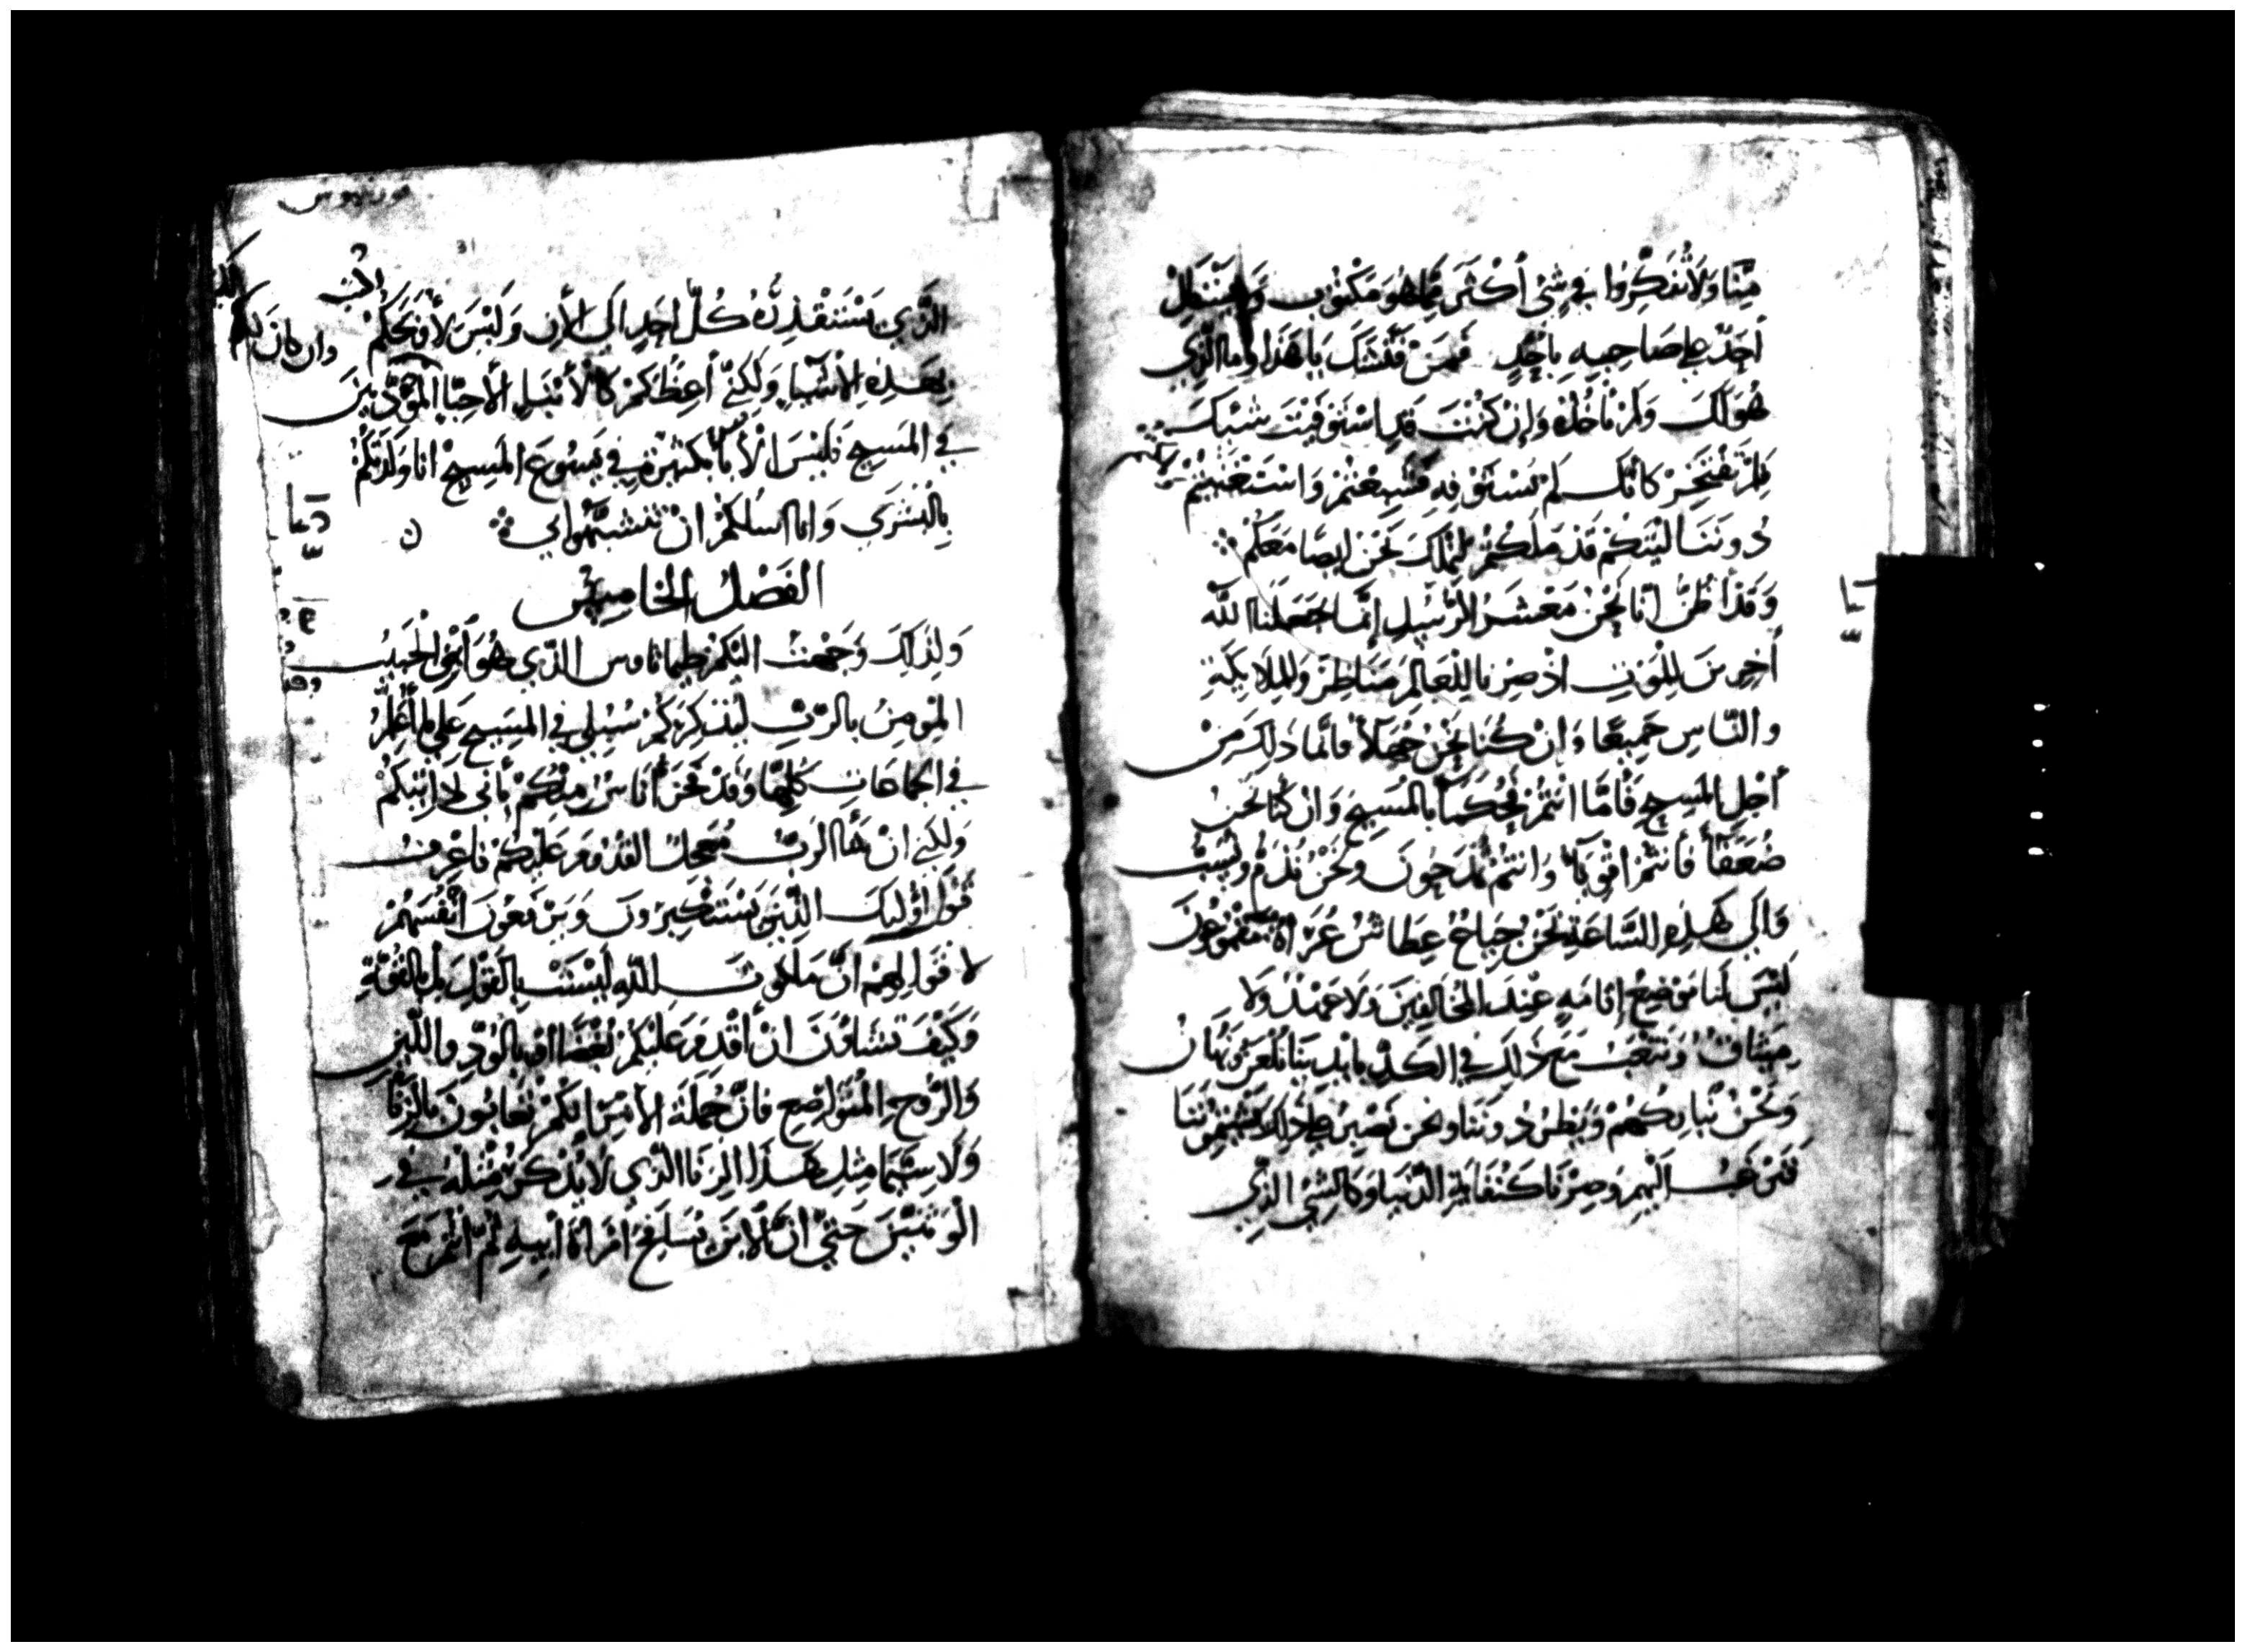 مِنَّا وَلَا تُفَكِّرُوا في شَيْ أَكْثَرَ مِمَّا هُوَ مَكْتُوْب وَلَا يَسْتَطِلْ
أَحَدٌ علي صَاحِبِهِ بِاَحَدٍ فَمَنْ فَتَّشَكَ يَا هَذَا وَمَا الَّذِي
هُوَ لَكَ وَلَمْ تَاخُذْهُ وَاِنْ كُنْتَ قَدِ اسْتَوفَيْتَ
فَلِمَ تَفْتَخِرْ كَانَّكَ لَمْ تَسْتَوْفِهِ قَدْ شَبِعْتُمْ وَاسْتَغْنَيْتُمْ
دُونَنَا لَيْتَكُمْ قَدْ مَلَكْتُمْ لِنَمْلِكَ نَحْنُ ايضًا مَعَكُمْ
وَقَدْ أَظُنُّ اَنَّا نَحْنُ مَعْشَرَ الرُّسُلِ إِنَّمَا جَعَلَنَا اللّه
أَخِرِينَ لِلْمَوْتِ اذْ صِرْنَا لِلْعَالَمِ مَنَاظِرَ وَلِلْمَلَايِكَةِ
والنَّاسِ جَمِيعًا وَانْ كُنَّا نَحْنُ جُهَلَاً فَانَّمَا ذَلِكَ مِنْ
أَجْلِ المَسِيحِ فَأَمَّا اَنْتُمْ فَحُكَمَاً بالمَسِيحِ وَانْ كُنَّا نَحْنُ
ضُعَفَاً فَأَنْتُمْ اقْوِيَاً وَانْتُمْ تُمْدَحُونَ وَنَحْنُ نُذَمُّ وَنُسَبُّ
وَالَي هَذِهِ السَّاعَةِ نَحْنُ جِيَاعٌ عِطَاشٌ عُرَاةٌ مَقْمُوعُونَ
لَيْسَ لَنَا مَوْضِعُ إِقَامَهٍ عِنْدَ المُخَالِفِينَ وَلَا عَهْدٌ وَلَا
مِيثَاقٌ وَنَتْعَبُ مَعَ ذَلِكَ في الكَدِّ بِايْدِينَا نُلْعَنُ وَنُهَانُ
وَنَحْنُ نُبَارِكُهُمْ وَيَطْرُدُونَنَا وَنَحْنُ نَصْبِرُ عَلَي ذَلِكَ يَشْتِمُونَنَا
فَنَرْغَبُ الَيْهِمْ وَصِرْنَا كَنُفَايَةِ الدُّنْيَا وَكَالشَّيِ الَّذِي
الَّذِي يَسْتَقْذِرُهُ كُلُّ اَحَدٍ الَي الأَن وَلَيْسَ لأُوَبِّخَكُمْ
بِهَذِهِ الأَشْيَا وَلَكِنِّي أَعِظُكُمْ كَالأَبْنَا الأَحِبَّا المُؤَدَّبِينَ
وان كان لكم
في المَسِيحِ فَلَيْسَ الأَبَا بِكَثِيرٍ في يَسُوعَ المَسِيحِ انا وَلَدْتُكُمْ
بِالْبُشْرَي وَانا اسْلُكُمْ انْ تَتَشَبَّهُوا بي
الفَصْلُ الخَامِس
وَلِذَلِكَ وَجَّهْتُ الَيْكُمْ طِيمَاثَاوس الَّذِي هُوَ اَبْنِي الْحَبِيبُ
المُومِنُ بالرَّبِّ لِيُذَكِّرَكُمْ سُبُلِي في المَسِيحِ عَلَي مَا أُعَلِّمُ
في الجَمَاعَاتِ كُلِّهَا وَقَدْ فَخَرَ أُنَاسٌ مِنْكُمْ بِأَنِّي لا اتِيكُمْ
وَلَكِنِّي انْ شَآ الرَّبُّ مُعَجِّلٌ القُدُومَ عَلَيْكُمْ فَاعْرِفُ
قَوْلَ أُوْلَيِكَ الَّذِينَ يَسْتَكْبِرُونَ وَيَرْفَعُونَ أَنْفُسَهُمْ
لا قَوْلَهُمْ اِنَّ مَلَكُوتَ اللَّهِ لَيْسَتْ بِالقَوْلِ بَلْ بِالقُوَّةِ
وَكَيْفَ تَشَاوُنَ انْ أَقْدَمَ عَلَيْكُمْ بِالعَصَا أَوْ بِالوُدِّ وَاللِّينِ
وَالرُّوحِ المُتَوَاضِعِ فَانَّ جُمْلَةَ الأَمْرِ اَنَّكُمْ تُعَابُونَ بِالزِّنَا
وَلَا سِيَّمَا مِثْلِ هَذَا الزِّنَا الَّذِي لَا يُذْكَرُ مِثْلُهُ في
الْوَثَنِيِّينَ حَتَّي انَّ الابْنَ يَتَسَلَّطُ أَمْرَاةَ أَبِيهِ ثُمَّ انْتُمْ مَعَ